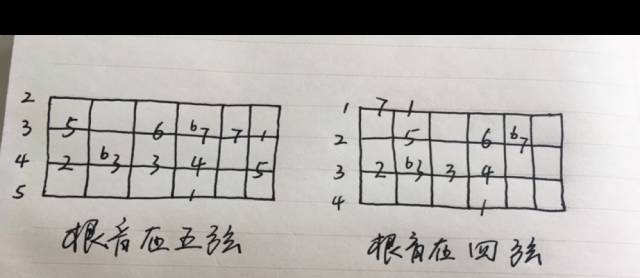 2
3 5 6 b7 7 1
4 2 b3 3 4 5
5 1
根音在五弦
1 7 1
2 5 6 b7
3 2 b3 3 4
4 1
根音在四弦